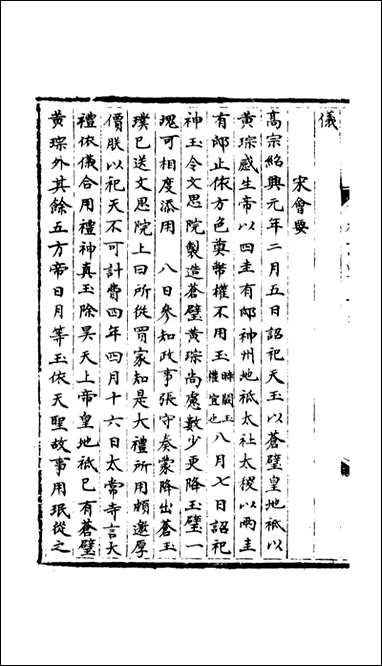 儀
宋會要
髙宗紹興元年二月五日詔祀天玉以蒼璧皇地祇以
黄琮感生帝以四圭有邸神州地祇太社太稷以兩圭
有邸止依方色奠幣權不用玉時闕玉權宜也八月七日詔祀
神玉令文思院製造蒼璧黄琮尚慮數少更降玉璧一
塊可相度添用 八日參知政事張守奏蒙降出蒼玉
璞已送文思院上曰所從買家知是大禮所用頗邀厚
價朕以祀天不可計費四年四月十六日太常寺言大
禮依儀合用禮神真玉除昊天上帝皇地祇已有蒼璧
黄琮外其餘五方帝日月等玉依天聖故事用珉從之